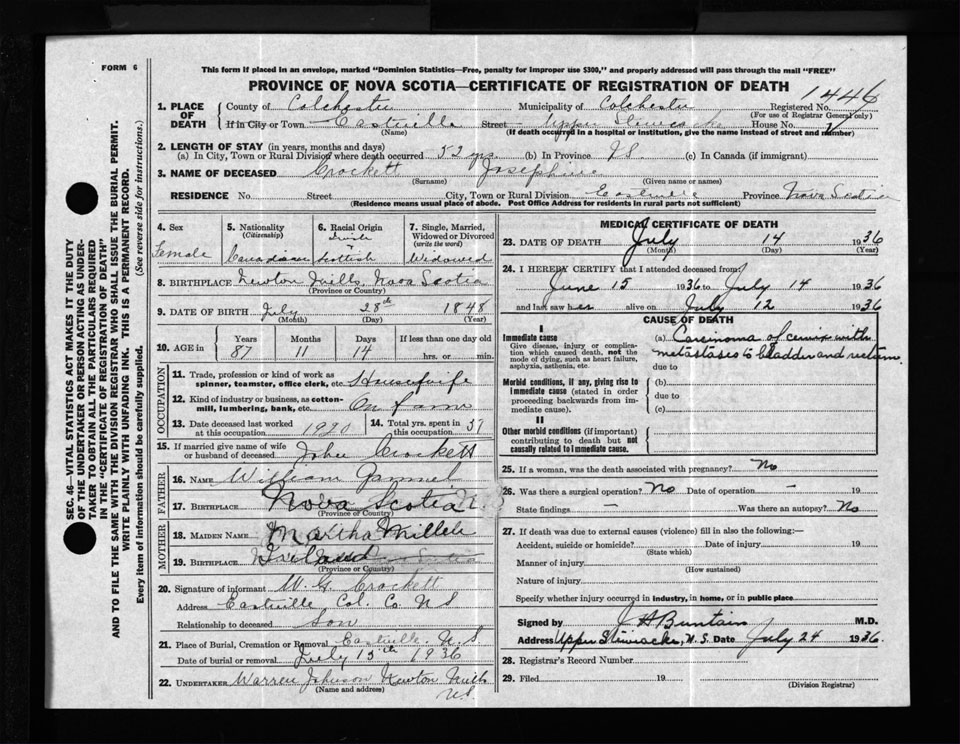 FORM 6
This form if placed in an envelope, marked "Dominion Statistics—Free, penalty for improper use $300," and properly addressed will pass through the mail "FREE"
PROVINCE OF NOVA SCOTIA—CERTIFICATE OF REGISTRATION OF DEATH
1446
1. PLACE OF DEATH County of Colchester Municipality of Colchester Registered No.
(For use of Registrar General only)
If in City or Town Eastville Street Upper Stewiacke House No.
(Name) (If death occurred in a hospital or institution, give the name instead of street and number)
2. LENGTH OF STAY (in years, months and days)
(a) In City, Town or Rural Division where death occurred 52 yrs. (b) In Province NS. (c) In Canada (if immigrant)
3. NAME OF DECEASED Crockett Josephine
(Surname) (Given name or names)
RESIDENCE No. Street City, Town or Rural Division Eastville Province Nova Scotia
(Residence means usual place of abode. Post Office Address for residents in rural parts not sufficient)
4. Sex 5. Nationality (Citizenship) 6. Racial Origin 7. Single, Married, Widowed or Divorced (write the word)
Female Canadian Scottish Widowed
8. BIRTHPLACE Newton Mills, Nova Scotia
(Province or Country)
9. DATE OF BIRTH July 28th 1848
(Month) (Day) (Year)
10. AGE in Years Months Days If less than one day old
87 11 14 hrs. or min.
OCCUPATION
11. Trade, profession or kind of work as spinner, teamster, office clerk, etc. Housewife
12. Kind of industry or business, as cotton-mill, lumbering, bank, etc. On farm
13. Date deceased last worked at this occupation 1920 14. Total yrs. spent in this occupation 37
15. If married give name of wife or husband of deceased John Crockett
FATHER
16. NAME William
17. BIRTHPLACE Nova Scotia N.S
(Province or Country)
MOTHER
18. MAIDEN NAME Martha Miller
19. BIRTHPLACE Ireland
(Province or Country)
20. Signature of informant W. G. Crockett
Address Eastville Col. Co. N S
Relationship to deceased Son
21. Place of Burial, Cremation or Removal Eastville. N.S.
Date of burial or removal July 15th 1936
22. UNDERTAKER Warren Johnson Newton Mills
(Name and address) NS
MEDICAL CERTIFICATE OF DEATH
23. DATE OF DEATH July 14 1936
(Month) (Day) (Year)
24. I HEREBY CERTIFY that I attended deceased from:
June 15 1936 to July 14 1936
and last saw her alive on July 12 1936
CAUSE OF DEATH
I
Immediate cause
Give disease, injury or complication which caused death, not the mode of dying, such as heart failure, asphyxia, asthenia, etc.
(a) Carcinoma of cervix with
metastases to bladder and rectum.
due to
Morbid conditions, if any, giving rise to immediate cause (stated in order proceeding backwards from immediate cause).
(b)
due to
(c)
II
Other morbid conditions (if important) contributing to death but not causally related to immediate cause.
25. If a woman, was the death associated with pregnancy? No
26. Was there a surgical operation? No Date of operation — 19
State findings — Was there an autopsy? No
27. If death was due to external causes (violence) fill in also the following:—
Accident, suicide or homicide? Date of injury 19
(State which)
Manner of injury
(How sustained)
Nature of injury
Specify whether injury occurred in industry, in home, or in public place
Signed by J H Buntain M.D.
Address Upper Stewiacke, N.S. Date July 24 1936.
28. Registrar's Record Number
29. Filed 19
(Division Registrar)
SEC. 46—VITAL STATISTICS ACT MAKES IT THE DUTY
OF THE UNDERTAKER OR PERSON ACTING AS UNDER-
TAKER TO OBTAIN ALL THE PARTICULARS REQUIRED
IN THE "CERTIFICATE OF REGISTRATION OF DEATH"
AND TO FILE THE SAME WITH THE DIVISION REGISTRAR WHO SHALL ISSUE THE BURIAL PERMIT.
WRITE PLAINLY WITH UNFADING INK. THIS IS A PERMANENT RECORD.
Every item of information should be carefully supplied. (See reverse side for instructions.)